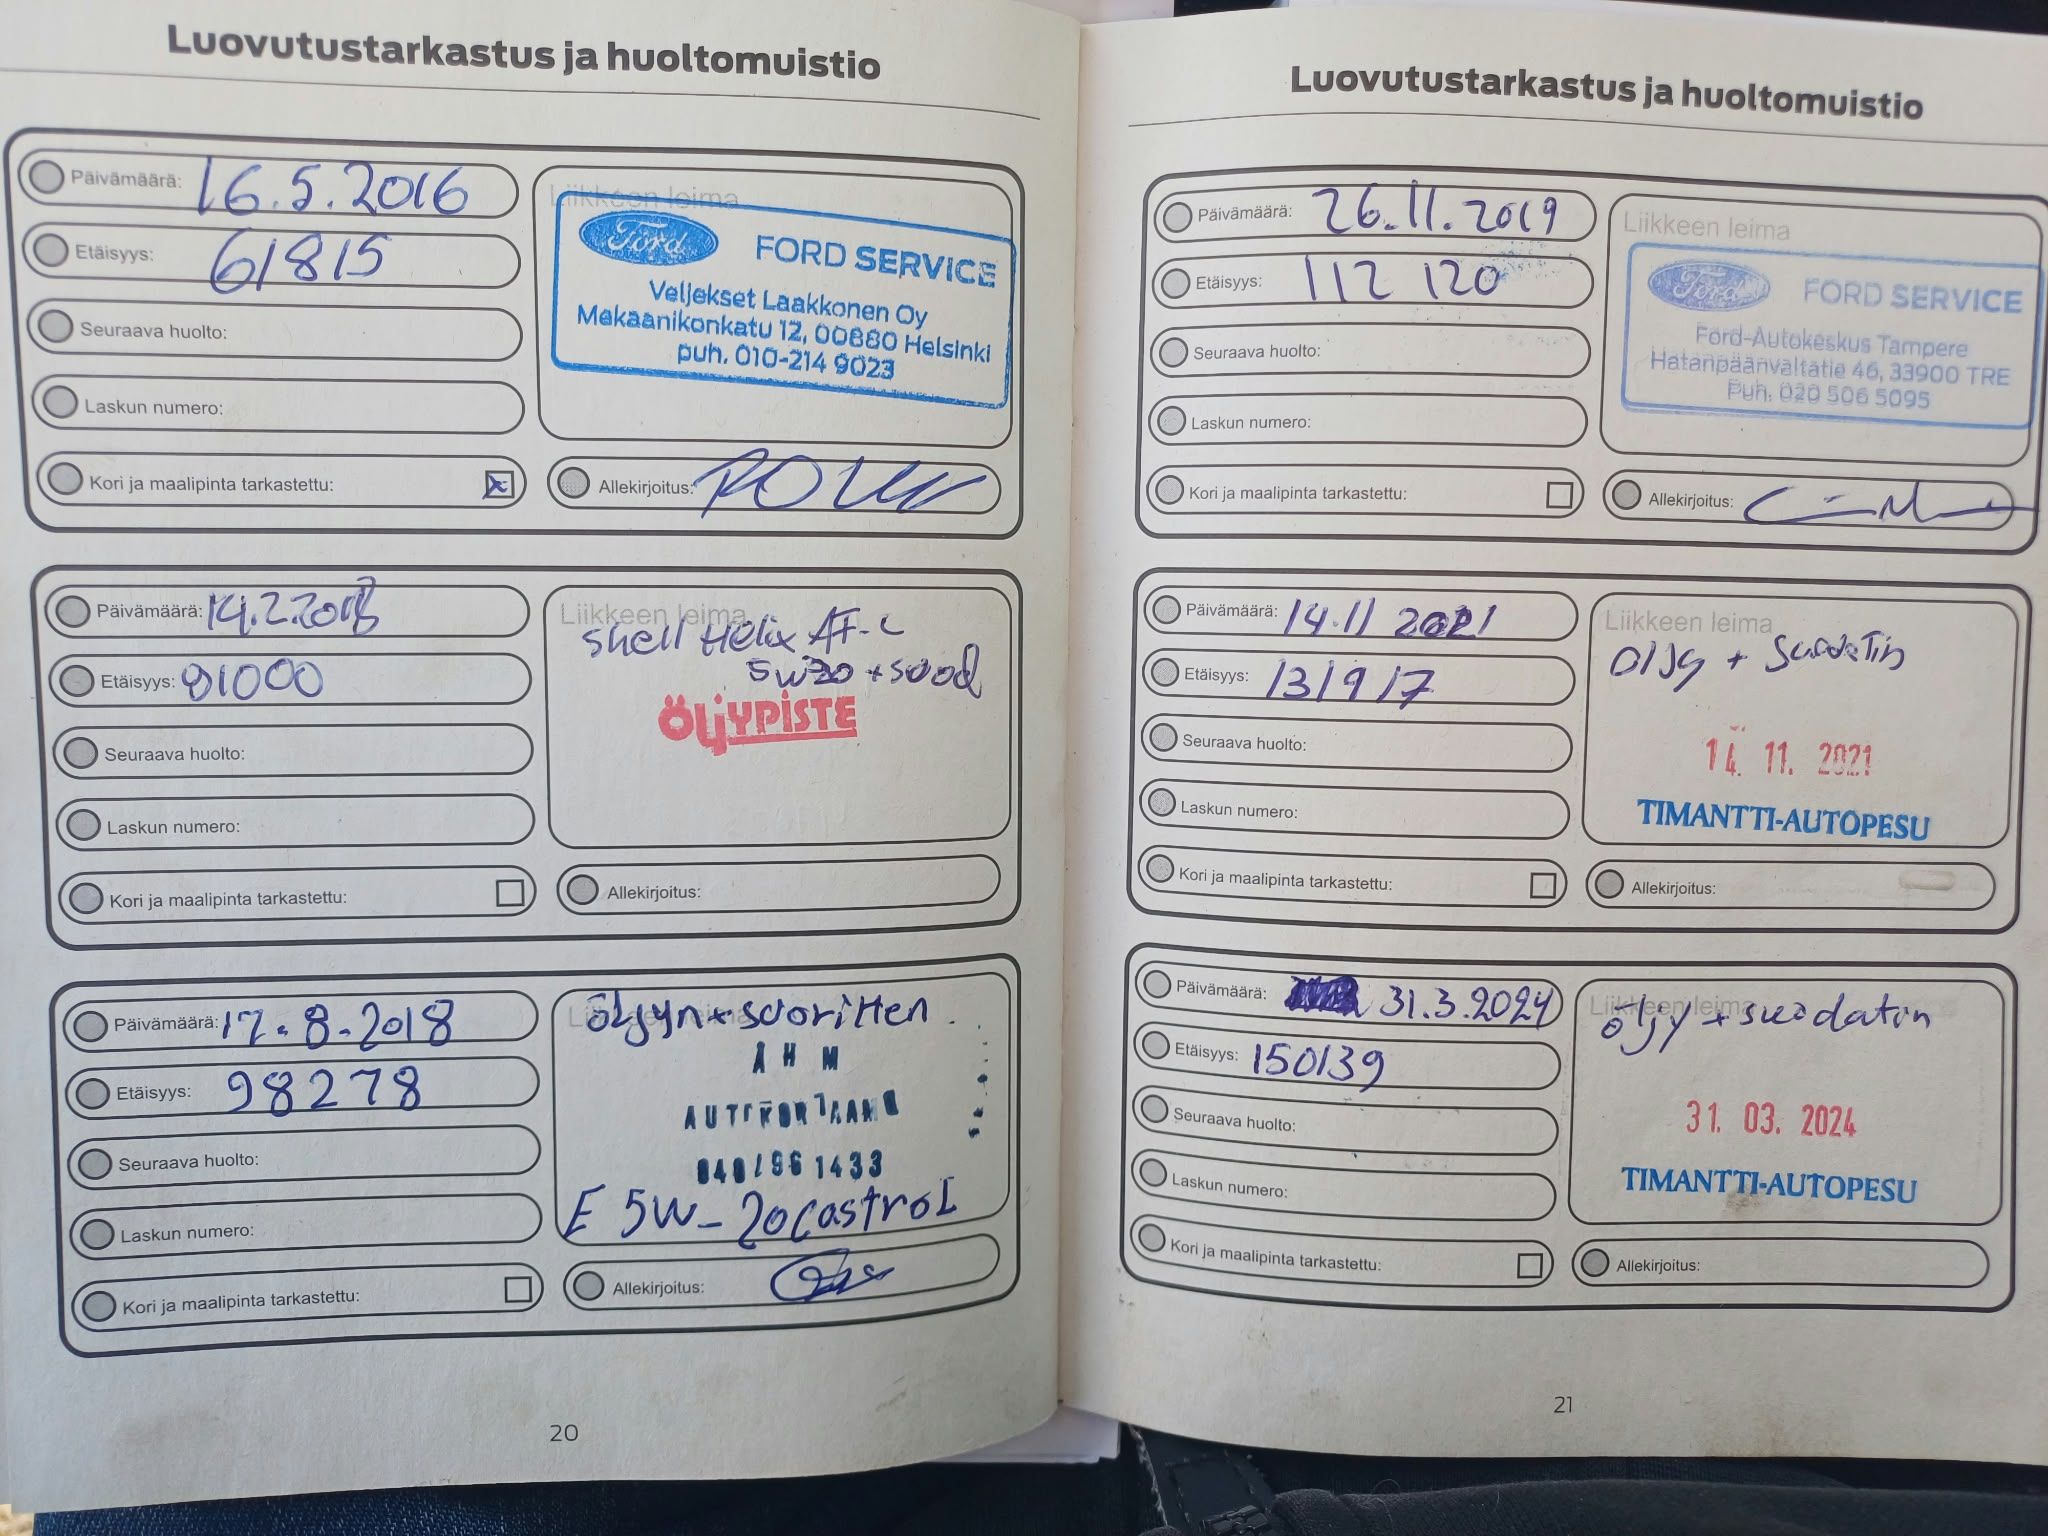 Luovutustarkastus ja huoltomuistio
Päivämäärä: 16.5.2016
Etäisyys: 61815
Seuraava huolto:
Laskun numero:
Kori ja maalipinta tarkastettu: x
Liikkeen leima
Ford FORD SERVICE
Veljekset Laakkonen Oy
Mekaanikonkatu 12, 00880 Helsinki
puh. 010-214 9023
Allekirjoitus:
Päivämäärä: 14.2.2018
Etäisyys: 91000
Seuraava huolto:
Laskun numero:
Kori ja maalipinta tarkastettu:
Liikkeen leima
Shell Helix AF-L
5w20 + suod
ÖLJYPISTE
Allekirjoitus:
Päivämäärä: 17.8.2018
Etäisyys: 98278
Seuraava huolto:
Laskun numero:
Kori ja maalipinta tarkastettu:
Liikkeen leima
öljyn + suoritten
A H M
040/96 1433
E 5W-20 castroL
Allekirjoitus:
20
Luovutustarkastus ja huoltomuistio
Päivämäärä: 26.11.2019
Etäisyys: 112 120
Seuraava huolto:
Laskun numero:
Kori ja maalipinta tarkastettu:
Liikkeen leima
Ford FORD SERVICE
Ford-Autokeskus Tampere
Hatanpäänvaltatie 46, 33900 TRE
Puh. 020 506 5095
Allekirjoitus:
Päivämäärä: 14.11 2021
Etäisyys: 131917
Seuraava huolto:
Laskun numero:
Kori ja maalipinta tarkastettu:
Liikkeen leima
öljy + suodatin
14. 11. 2021
TIMANTTI-AUTOPESU
Allekirjoitus:
Päivämäärä: 31.3.2024
Etäisyys: 150139
Seuraava huolto:
Laskun numero:
Kori ja maalipinta tarkastettu:
Liikkeen leima
öljy + suodatin
31. 03. 2024
TIMANTTI-AUTOPESU
Allekirjoitus:
21